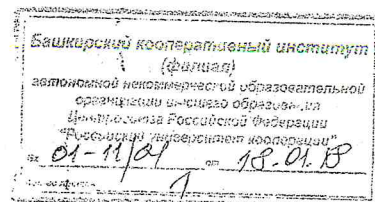 Башкирский кооперативный институт
(филиал)
автономной некоммерческой образовательной
организации высшего образования
Центросоюза Российской Федерации
"Российский университет кооперации"
01-11/01 от 18.01.18
1